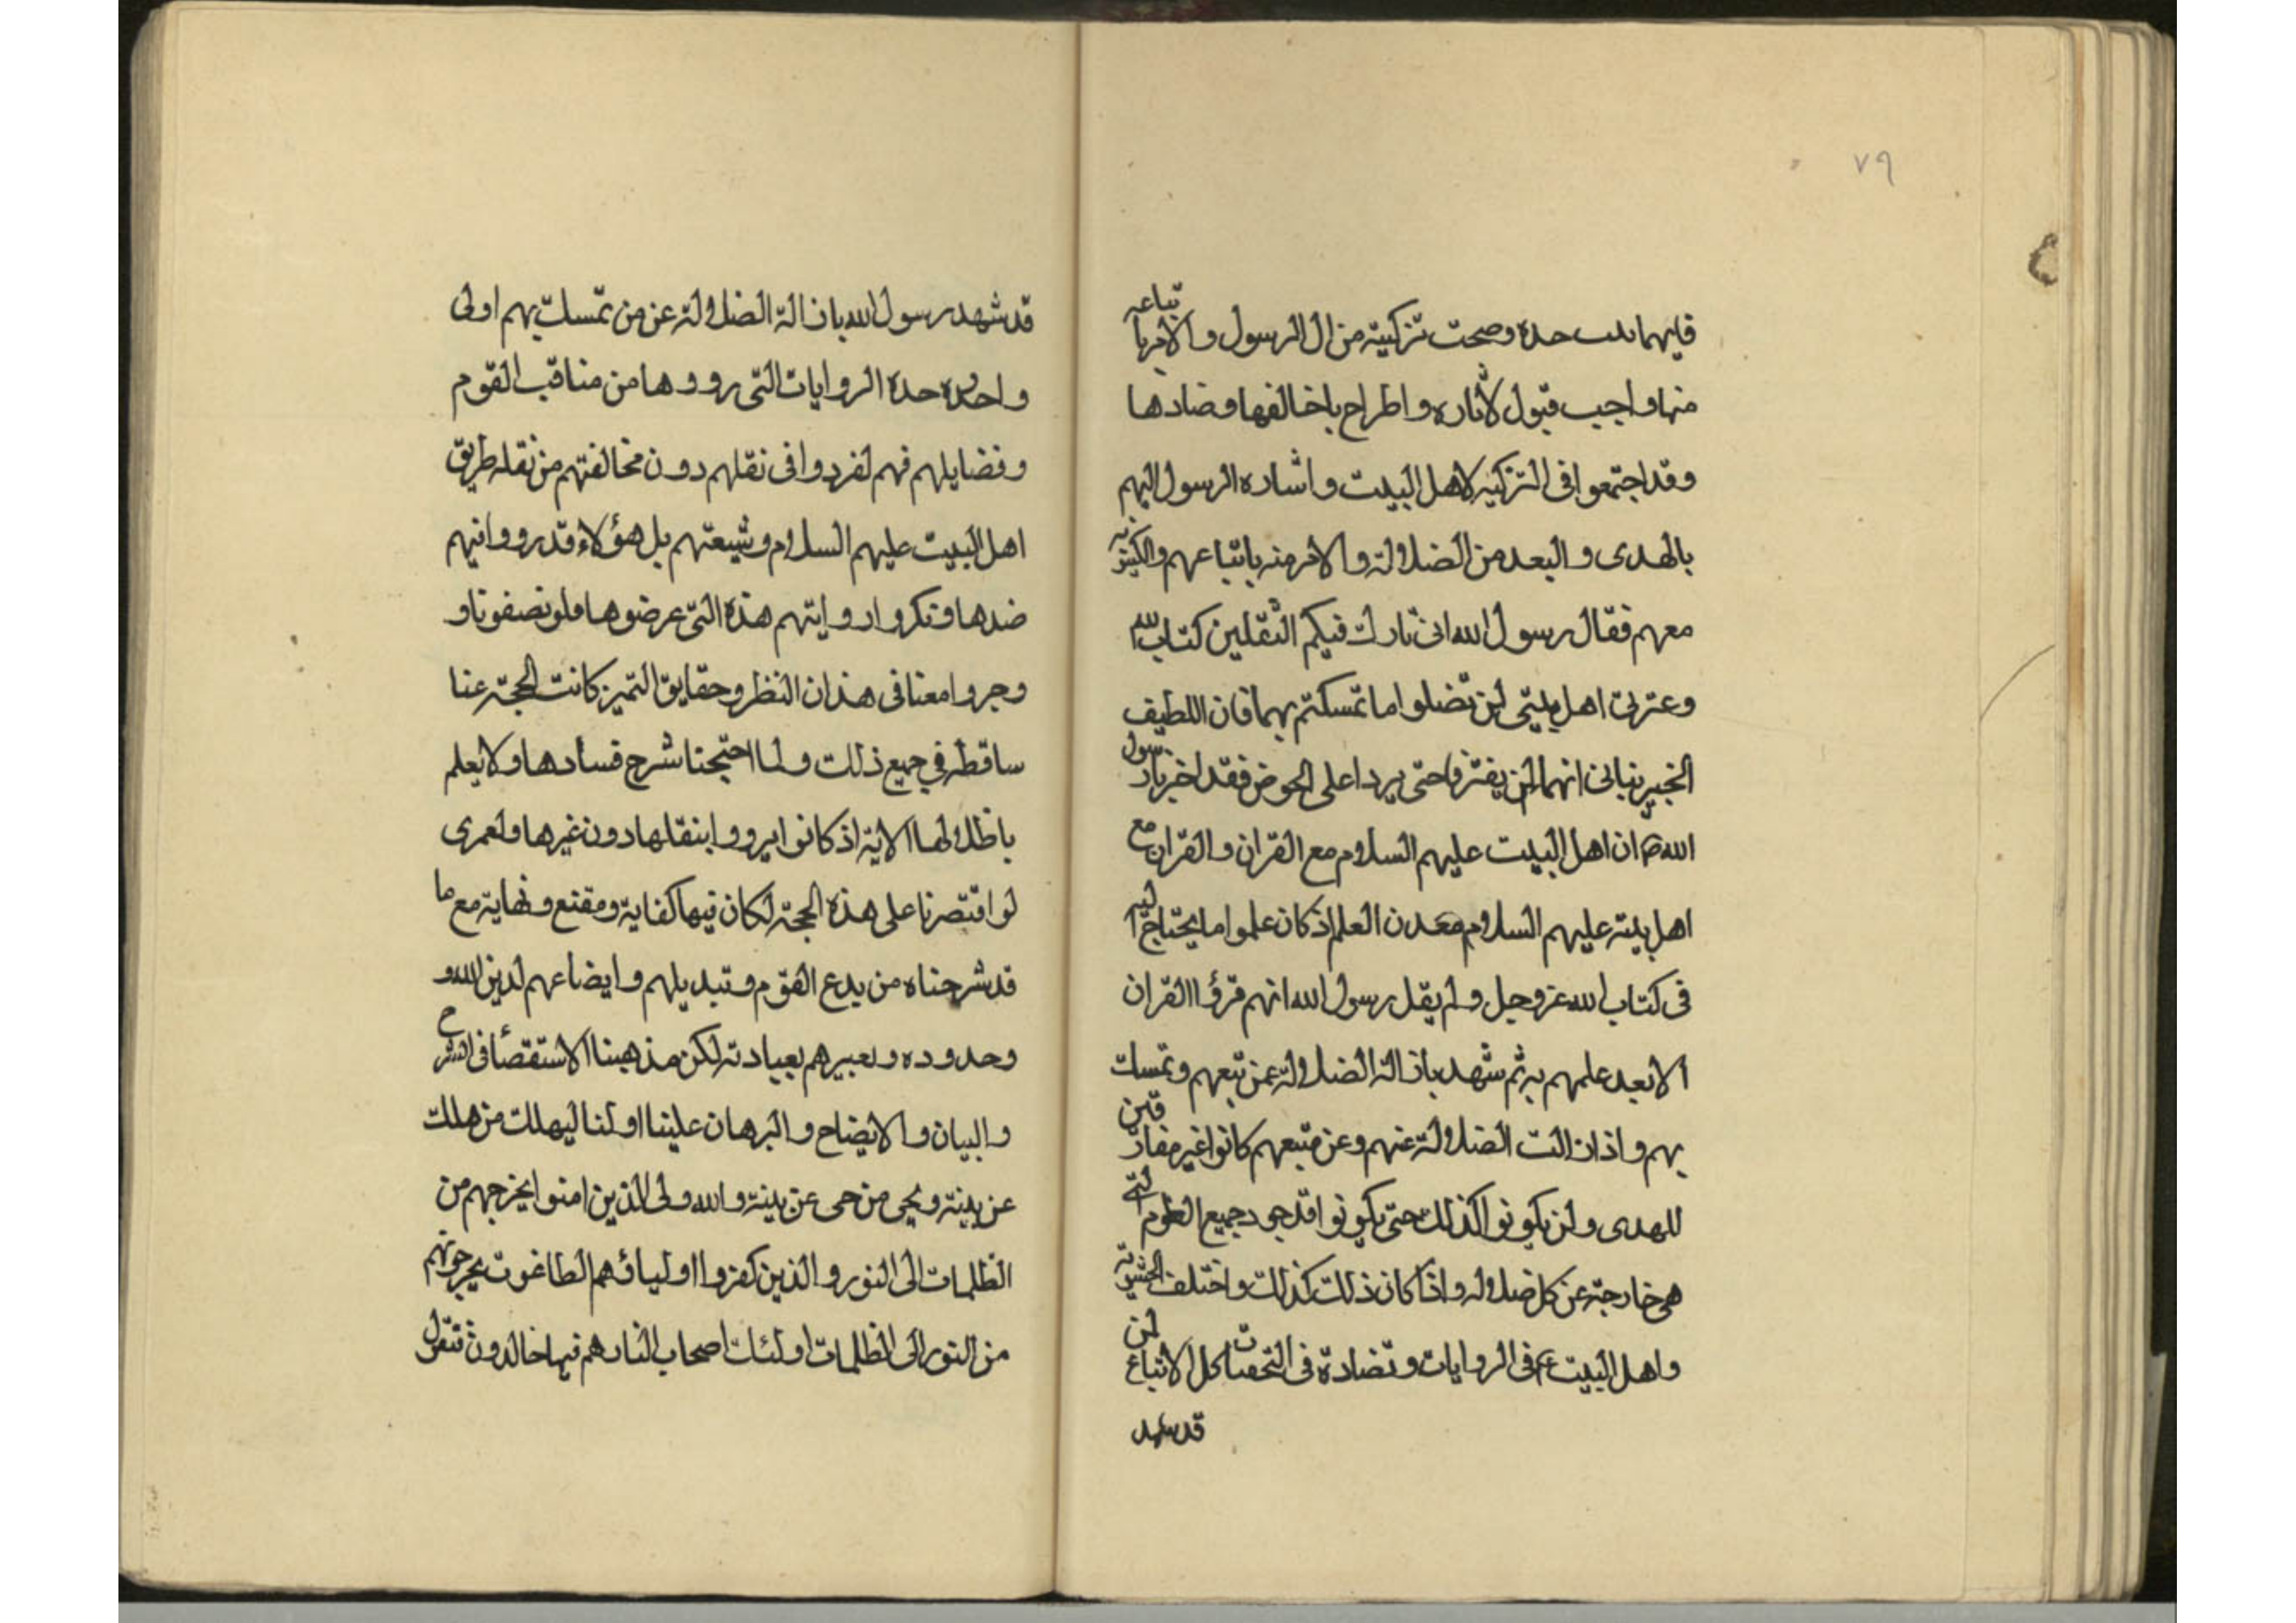 ٧٩
فايهما ثبت حده وصحت تزكيته من ال الرسول والامر باتباعه
منها واجب قبول لاثاره واطراح ما خالفها وضادها
وقد اجتمعوا في التزكيه لاهل البيت واشاره الرسول اليهم
بالهدى والبعد من الضلالة والامر منه باتباعهم والكينونه
معهم فقال رسول الله انى تارك فيكم الثقلين كتاب الله
وعترتى اهل بيتى لن تضلوا ما تمسكتم بهما فان اللطيف
الخبير نبانى انهما لن يفترقا حتى يردا على الحوض فقد اخبر بان رسول
الله ص ان اهل البيت عليهم السلام مع القران والقران مع
اهل بيته عليهم السلام معدن العلم اذ كان علموا ما يحتاج اليه
فى كتاب الله عز وجل ولم يقل رسول الله انهم قرؤا القران
الا بعد علمهم به ثم شهد بازالة الضلالة عمن تبعهم وتمسك
بهم واذا زالت الضلالة عنهم وعن متبعهم كانوا غير مفارقين
للهدى ولن يكونوا كذلك حتى يكونوا قد جمیع العلوم التى
هى خارجة عن كل ضلاله واذا كان ذلك كذلك واختلف الحشويه
واهل البيت ع فى الروايات وتضادة فى كل الاتباع لمن
قد شهد
قد شهد رسول الله بازالة الضلالة عن من تمسك بهم اولى
واحده حدة الروايات التى رووها من مناقب القوم
وفضايلهم فهم تفردوا فى نقلهم دون مخالفتهم من نقله طريق
اهل البيت عليهم السلام وشيعتهم بل هؤلاء قد رووا فيهم
ضدها وتكروا روايتهم هذه التى عرضوها فلو نصفونا و
وجروا معنا فى هذان النظر وحقايق التميز كانت الحجة عنا
ساقطه في جميع ذلك ولما احتجنا شرح فسادها ولا يعلم
باظلالها الاية اذ كانوا يرووا بنقلها دون غيرها ولعمرى
لو اقتصرنا على هذه الحجة لكان فيها كفاية ومقنع ونهاية مع ما
قد شرحناه من بدع القوم وتبديلهم وايضاعهم لدين الله و
وحدوده وتعبيرهم بعبادته لكن مذهبنا الاستقصأ فى الشرح
والبيان والايضاح والبرهان علينا اولنا ليهلك من هلك
عن بينة ويحيى من حى عن بينة والله ولى الذين امنوا يخرجهم من
الظلمات الى النور والذين كفروا اوليائهم الطاغوت يخرجونهم
من النور الى الظلمات اولئك اصحاب النار هم فيها خالدون فنقول